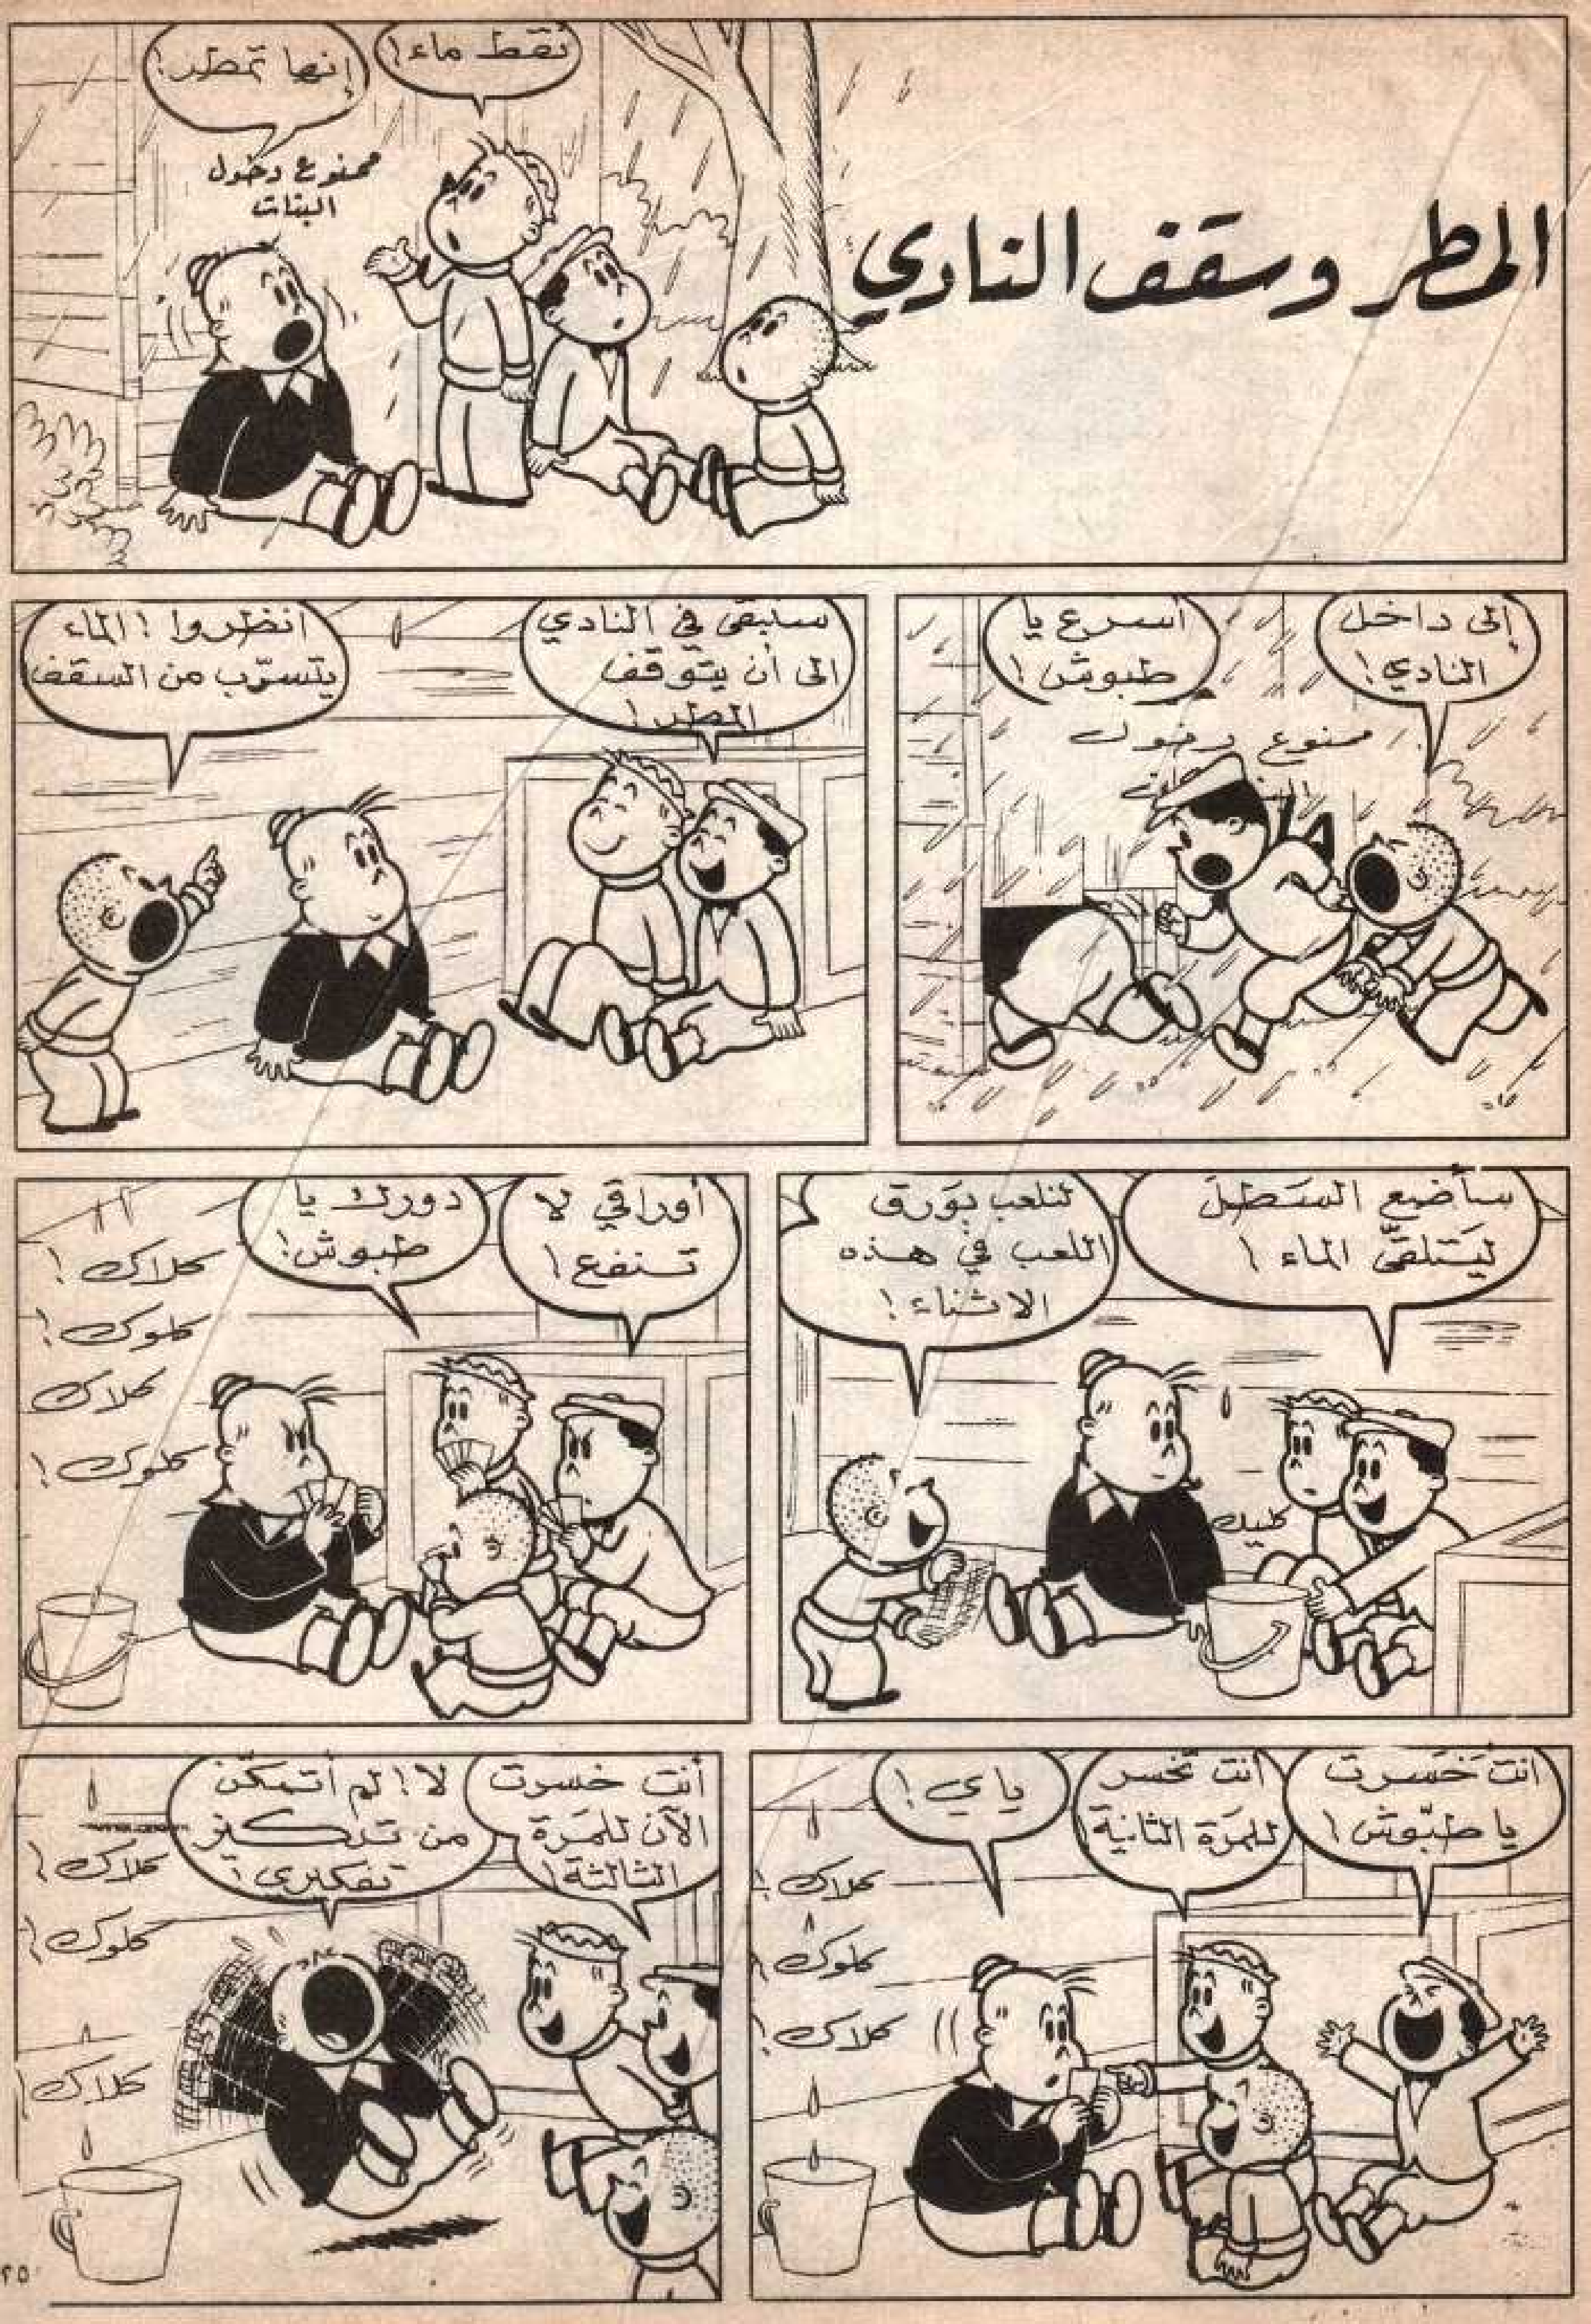 المطر وسقف النادي
نقط ماء!
إنها تمطر!
ممنوع دخول
البنات
إلى داخل
النادي!
أسرع يا
طبوش!
ممنوع دخول
سنبقى في النادي
الى أن يتوقف
المطر!
انظروا! الماء
يتسرّب من السقف
سأضع السَطل
ليَتلقّى الماء!
لنلعب بوَرق
اللعب في هذه
الاثناء!
كليك
أوراقي لا
تنفع!
دورك يا
طبوش!
كلاك!
كلوك!
كلاك
كلوك!
انتَ خَسرت
يا طبّوش!
انت تخسر
للمَرة الثانية
ياي!
كلاك!
كلوك!
كلاك!
أنت خسرت
الآن للمَرة
الثالثة!
لا! لم أتمكّن
من تركيز
تفكيري!
كلاك!
كلوك!
كلاك!
٢٥